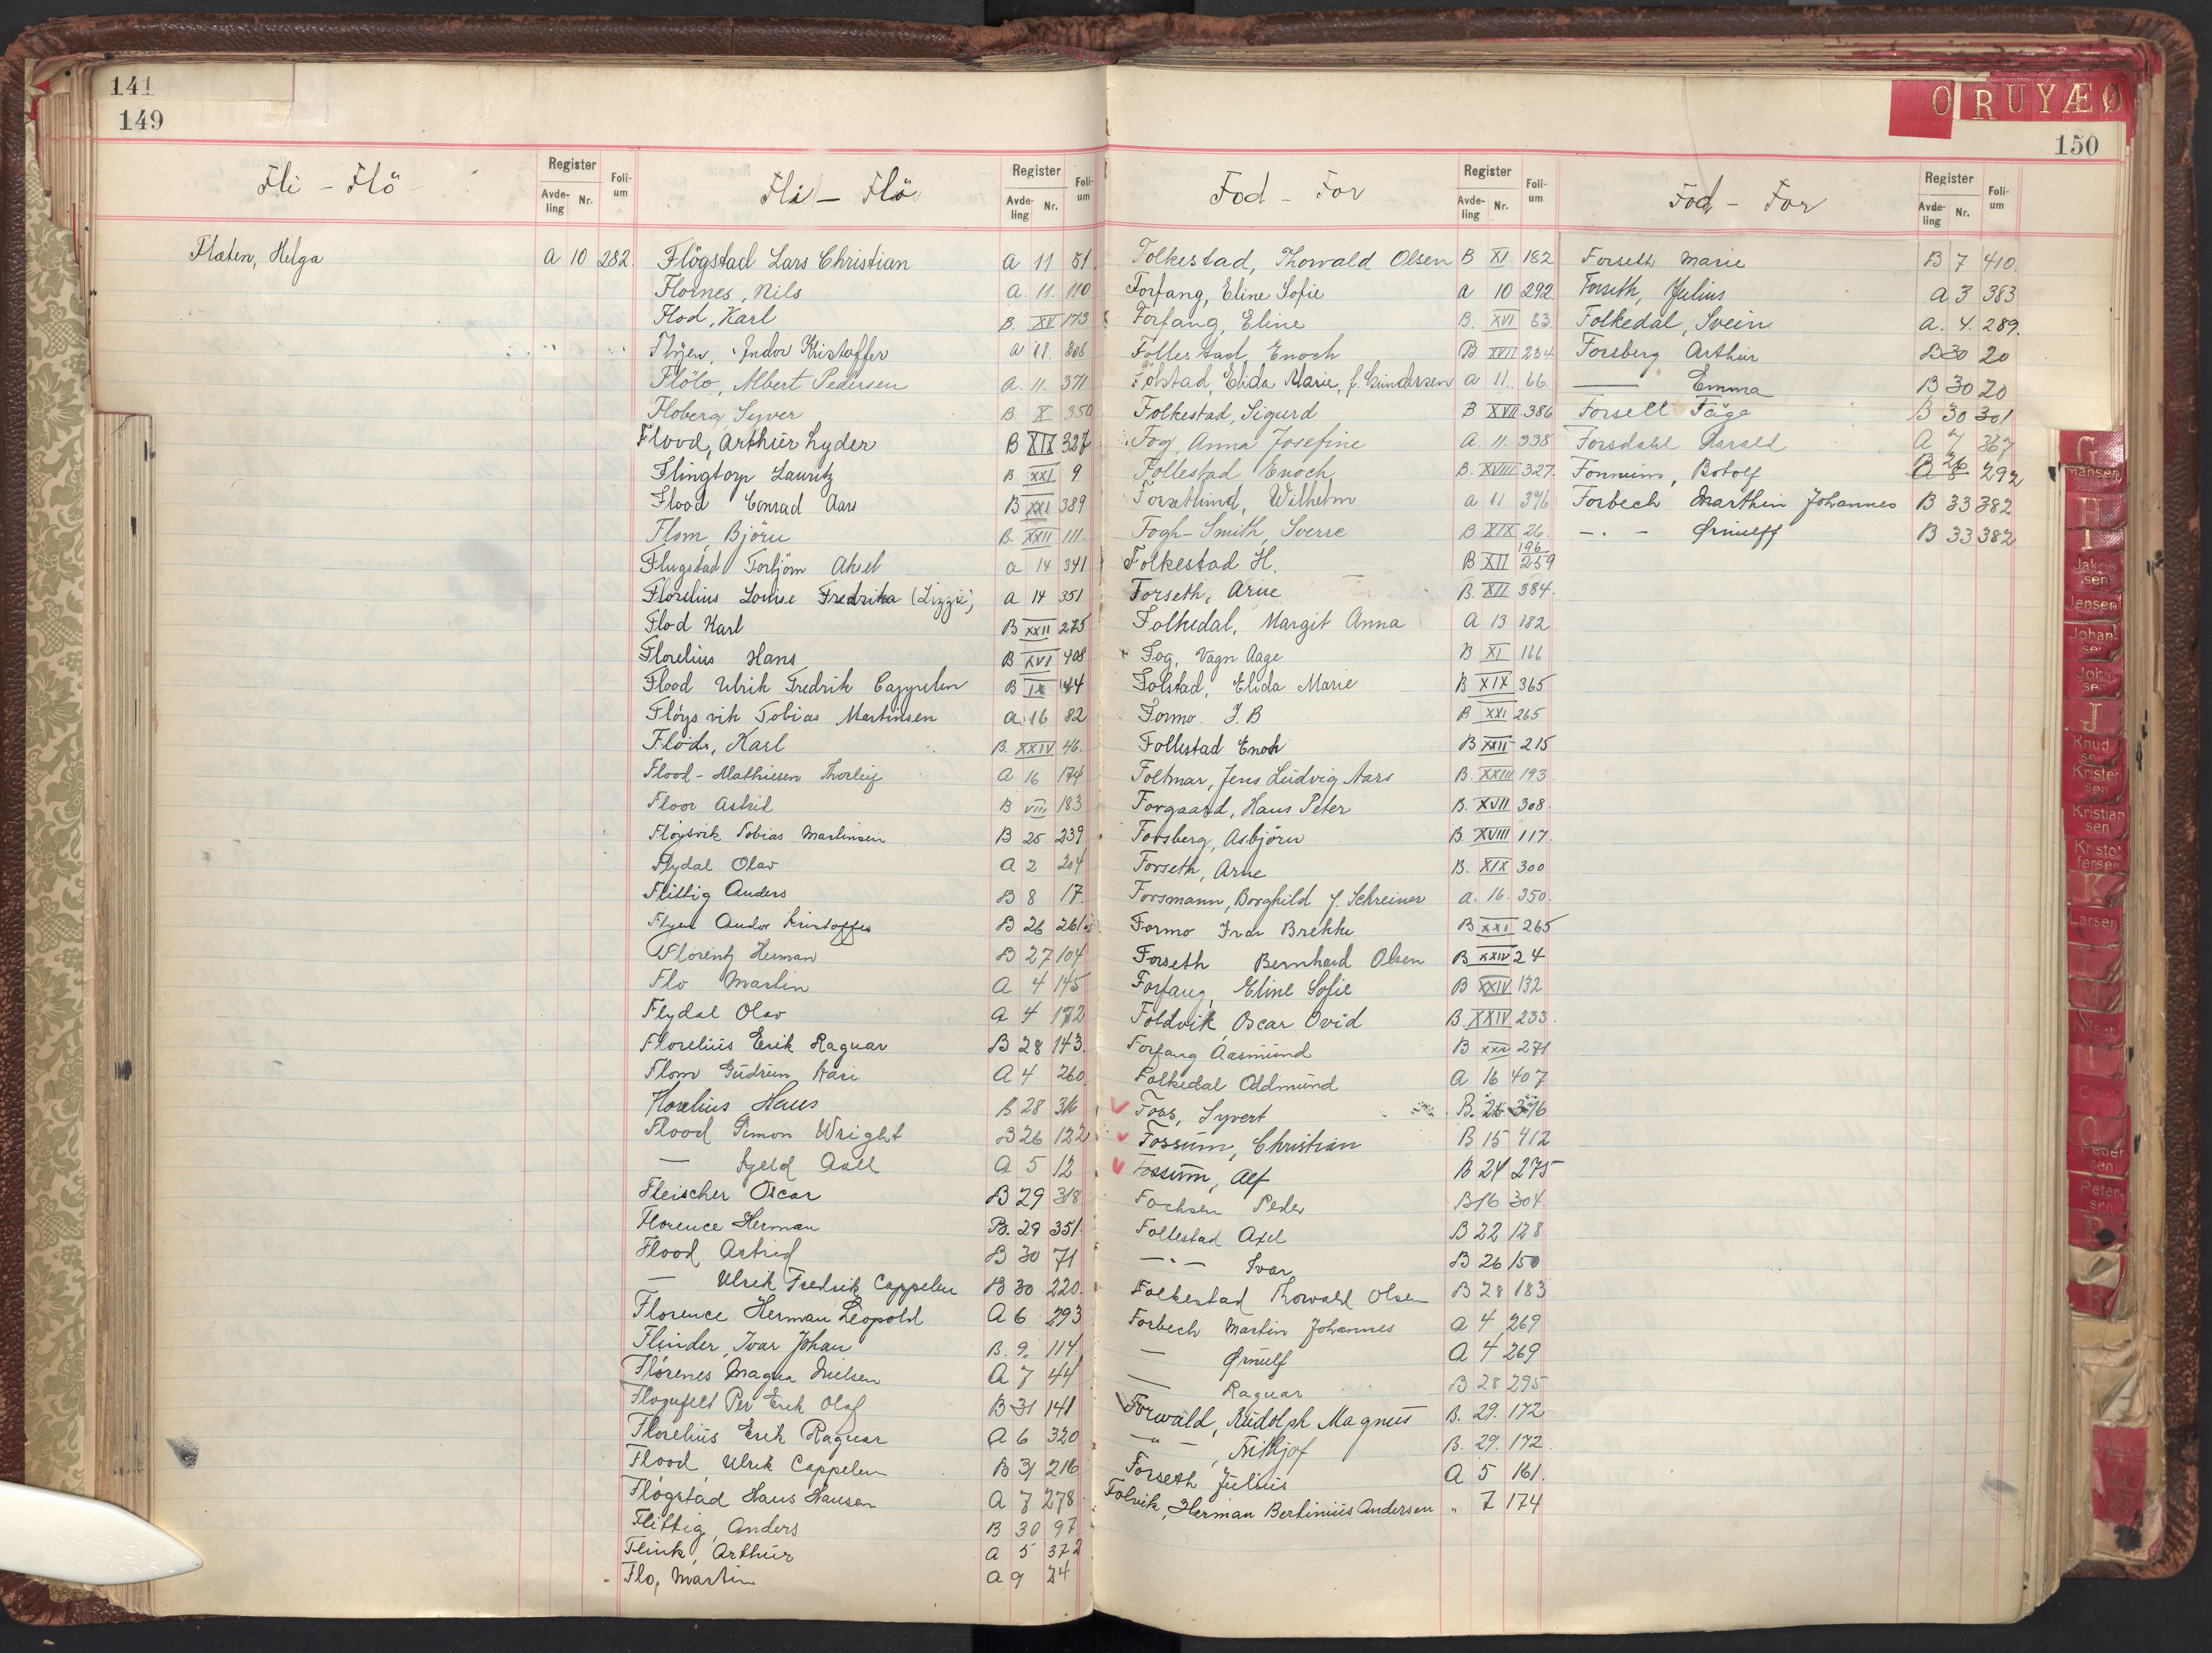 141
149
Fli – Flö
Register
Avde-
ling
Nr.
Foli-
um
Flaten, Helga A 10 282
Fli – Flö
Register
Avde-
ling
Nr.
Foli-
um
Flögstad Lars Christian A 11 51
Flornes, Nils A. 11. 110
Flod, Karl B. XV 173
Flyen, Andor Kristoffer A 11. 306
Flölo, Albert Pedersen A. 11. 371
Floberg, Syver B X 350
Flood, Arthur Lyder B XIX 327
Flingtorp Lauritz B XXI 9
Flood Conrad Aars B XXI 389
Flom, Björn B. XXII 111
Flugstad Torbjörn Aksel A 14 341
Florelius Louise Fredrika (Lizzie) A 14 351
Flod Karl B XXII 275
Florelius Hans B XVI 408
Flood Ulrik Fredrik Cappelen B IX 144
Flöysvik Tobias Martinsen A 16 82
Flod, Karl B. XXIV 46.
Flood-Mathiesen Thorleif A 16 174
Floor Askil B VIII 183
Flöysvik Tobias Martinsen B 25 239
Flydal Olav A 2 204
Flittig Anders B 8 17.
Flyen Andor Kristoffer B 26 261
Florentz Herman B 27 104
Flo Martin A 4 145
Flydal Olav A 4 172
Florelius Erik Ragnar B 28 143.
Flom Gudrun Kari A 4 260
Florelius Hans B 28 316
Flood Simon Wright B 26 122
— Kjeld Aall A 5 12
Fleischer Oscar B 29 318
Florence Herman B. 29 351.
Flood Astrid B 30 71
— Ulrik Fredrik Cappelen B 30 220.
Florence Herman Leopold A 6 293
Flinder, Ivar Johan B. 9. 114.
Florenes Magna Nielsen A 7 44
Flognfelt Per Erik Olaf B 31 141
Florelius Erik Ragnar A 6 320
Flood, Ulrik Cappelen B 31 216
Flögstad Hans Hansen A 7 278
Flittig, Anders B 30 97
Flink, Arthur A 5 372
Flo, Martin A 9 24
O R U Y Æ Ø
150
Fod – For
Register
Avde-
ling
Nr.
Foli-
um
Folkestad, Thorvald Olsen B XI 182
Forfang, Eline Sofie A 10 292
Forfang, Eline B. XVI 83
Follestad, Enoch B XVII 234
Folstad, Elida Marie, f. Gundersen A 11. 66.
Folkestad, Sigurd B XVII 386
Fog, Anna Josefine A. 11. 338
Follestad Enoch B. XVIII 327.
Forsetlund, Wilhelm A 11 376
Fogh-Smith, Sverre B XIX 26.
Folkestad H. B XII 196 259
Forseth, Arne B. XII 384.
Folkedal, Margit Anna A 13 182
Fog, Vagn Aage B XI 166
Folstad, Elida Marie B XIX 365
Formo. I. B B XXI 265
Follestad Enoch B XXII 215
Foltmar, Jens Ludvig Aars B. XXIII 193
Forgaard, Hans Peter B. XVII 308.
Forsberg, Asbjörn B. XVIII 117.
Forseth, Arne B. XIX 300
Forsmann, Borghild f. Schreiner A. 16. 350.
Formo Ivar Brekke B XXI 265
Forseth Bernhard Olsen B XXIV 24
Forfang, Eline Sofie B XXIV 132
Foldvik, Oscar Ovid B. XXIV 233.
Forfang Aasmund B XXV 271
Folkedal Oddmund A 16 407
Foss, Syvert B. 25 376
Fossum, Christian B 15 412
Fossum, Alf B 24 275
Fochsen Peder B 16 304
Follestad Axel B 22 128
—"— Ivar B 26 150
Folkestad Thorvald Olsen B 28 183
Forbech Martin Johannes A 4 269
— Ørnulf A 4 269
— Ragnar B 28 295
Forwald, Rudolph Magnus B. 29. 172
—"—, Frithjof B. 29. 172.
Forseth Julius A 5 161.
Folvik, Herman Bertinius Andersen " 7 174
Fod – For
Register
Avde-
ling
Nr.
Foli-
um
Forseth Marie B 7 410.
Forseth, Julius A 3 383
Folkedal, Svein A. 4. 289.
Forsberg Arthur B 30 20
— Emma B 30 20
Forsell Tage B 30 301
Forsdahl Harald A 7 367
Fonnum, Botolf B 26 A 8 292
Forbech Marthin Johannes B 33 382
—.— Ørnulff B 33 382
G
Hansen
H
I
Jakob
sen
Jensen
Johan-
sen
Joh
sen
J
Knud
sen
Krister
sen
Kristian
sen
Kristo
fersen
K
Larsen
Nilsen
O
Peder
sen
Peter-
sen